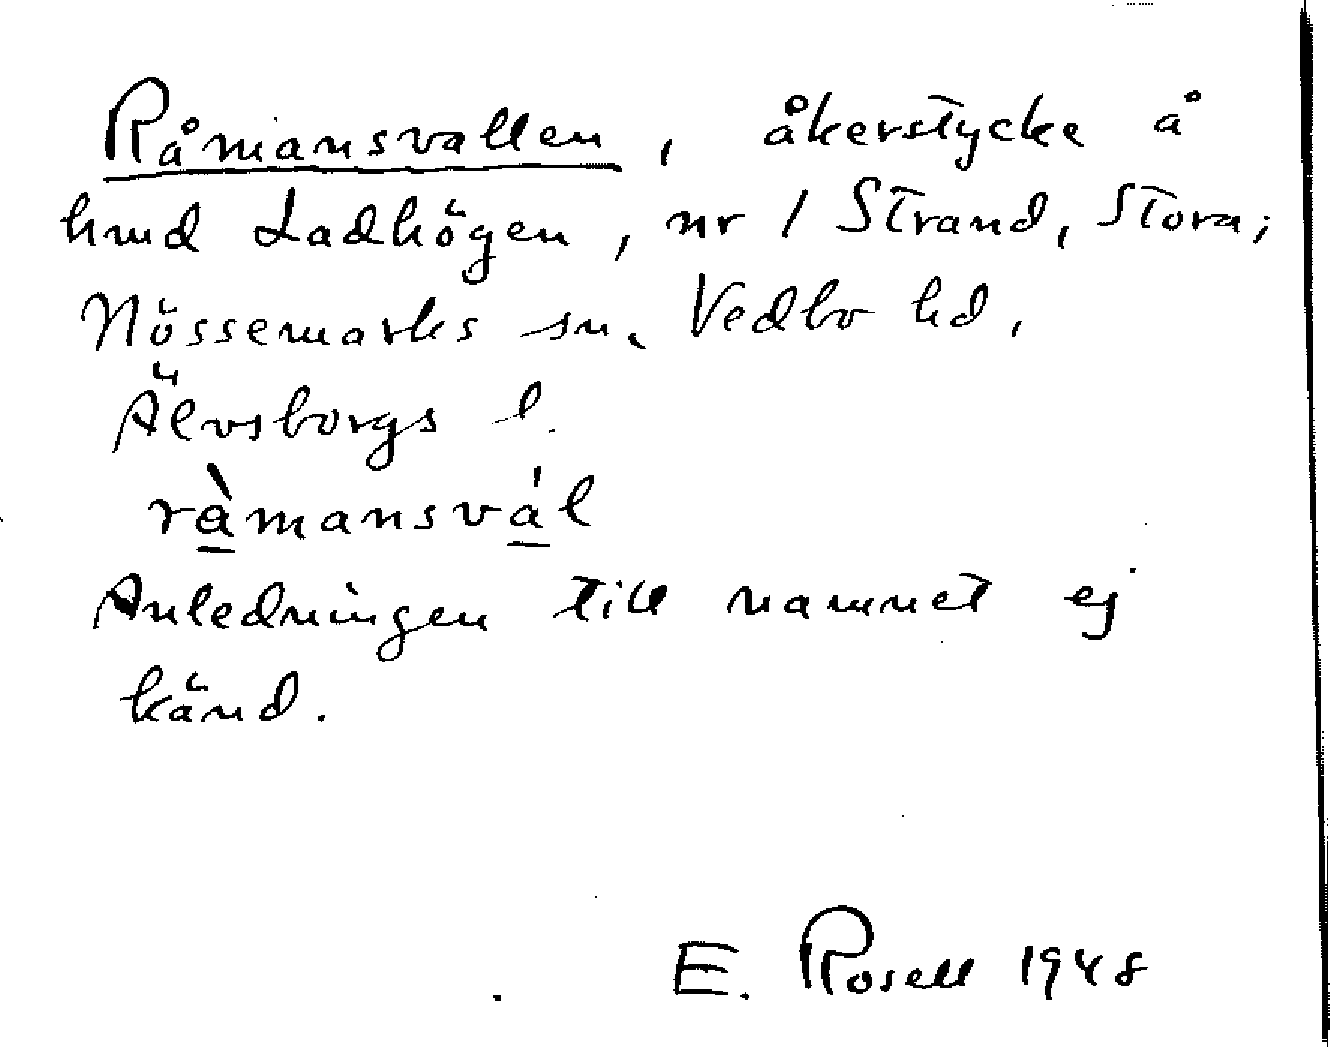 Råmansvallen, åkerstycke å
hmd Ladhögen, nr 1 Strand, Stora;
Nössemarks sn. Vedbo hd,
Älvsborgs l.
ràmansvál
Anledningen till namnet ej
känd.
E. Rosell 1948